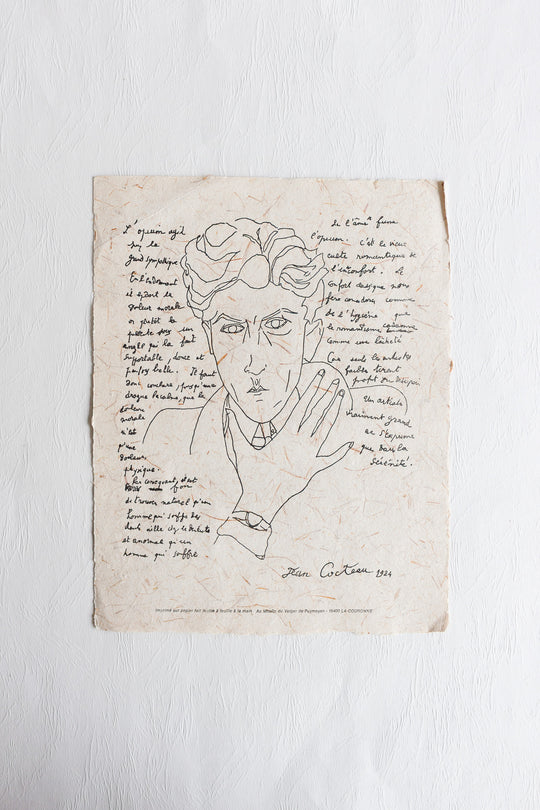 L'opium agit
sur le
grand sympathique
En l'endormant
il endort la
douleur morale
ou plutôt la
un
angle qui la fait
supportable, douce et
belle. Il faut
donc conclure, puisqu'une
drogue l'escalme, que la
douleur
morale
n'est
qu'une
douleur
physique.
Par conséquent, il faut
trouver naturel qu'un
homme qui souffre des
dents aille chez le dentiste
et anormal qu'un
homme qui souffre
de l'âme fume
l'opium. C'est le vieux
culte romantique de
l'inconfort. Le
confort classique nous
fera considérer comme
de l'hygiène que
le romantisme
comme une lâcheté
Car seuls les artistes
faibles tirent
profit du
Un artiste
vraiment grand
ne s'exprime
que dans la
sérénité.
Jean Cocteau 1924
Imprimé sur papier fait feuille à feuille à la main. Au Moulin du Verger de Puymoyen - 16400 LA COURONNE